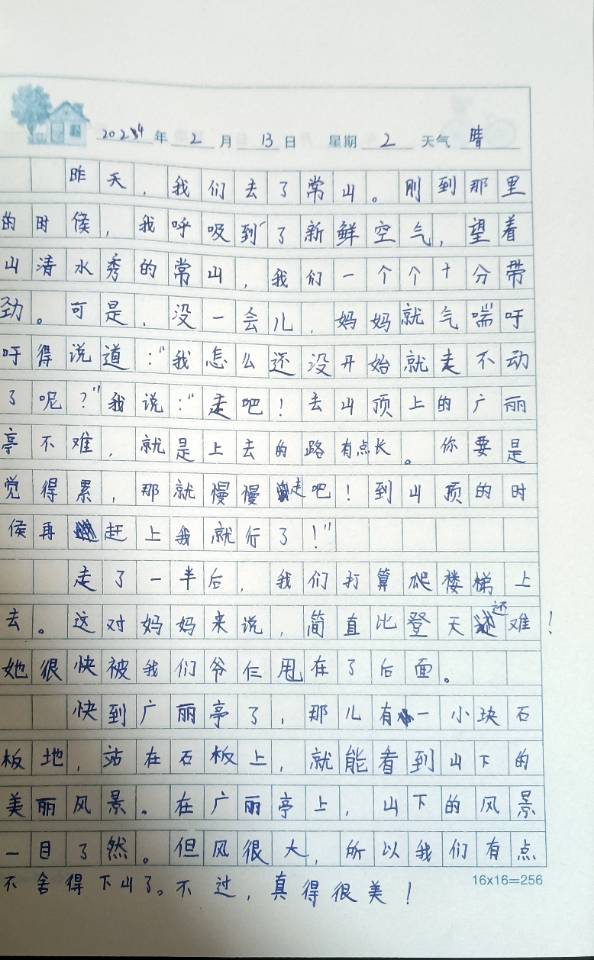 2024年 2月 13日 星期 2 天气 晴
昨天,我们去了常山。刚到那里
的时侯,我呼吸到了新鲜空气,望着
山清水秀的常山,我们一个个十分带
劲。可是,没一会儿,妈妈就气喘吁
吁得说道:“我怎么还没开始就走不动
了呢?”我说:“走吧!去山顶上的广丽
亭不难,就是上去的路有点长。你要是
觉得累,那就慢慢走吧!到山顶的时
侯再赶上我就行了!”
走了一半后,我们打算爬楼梯上
去。这对妈妈来说,简直比登天还难!
她很快被我们爷仨甩在了后面。
快到广丽亭了,那儿有一小块石
板地,站在石板上,就能看到山下的
美丽风景。在广丽亭上,山下的风景
一目了然。但风很大,所以我们有点
不舍得下山了。不过,真得很美!
16x16=256